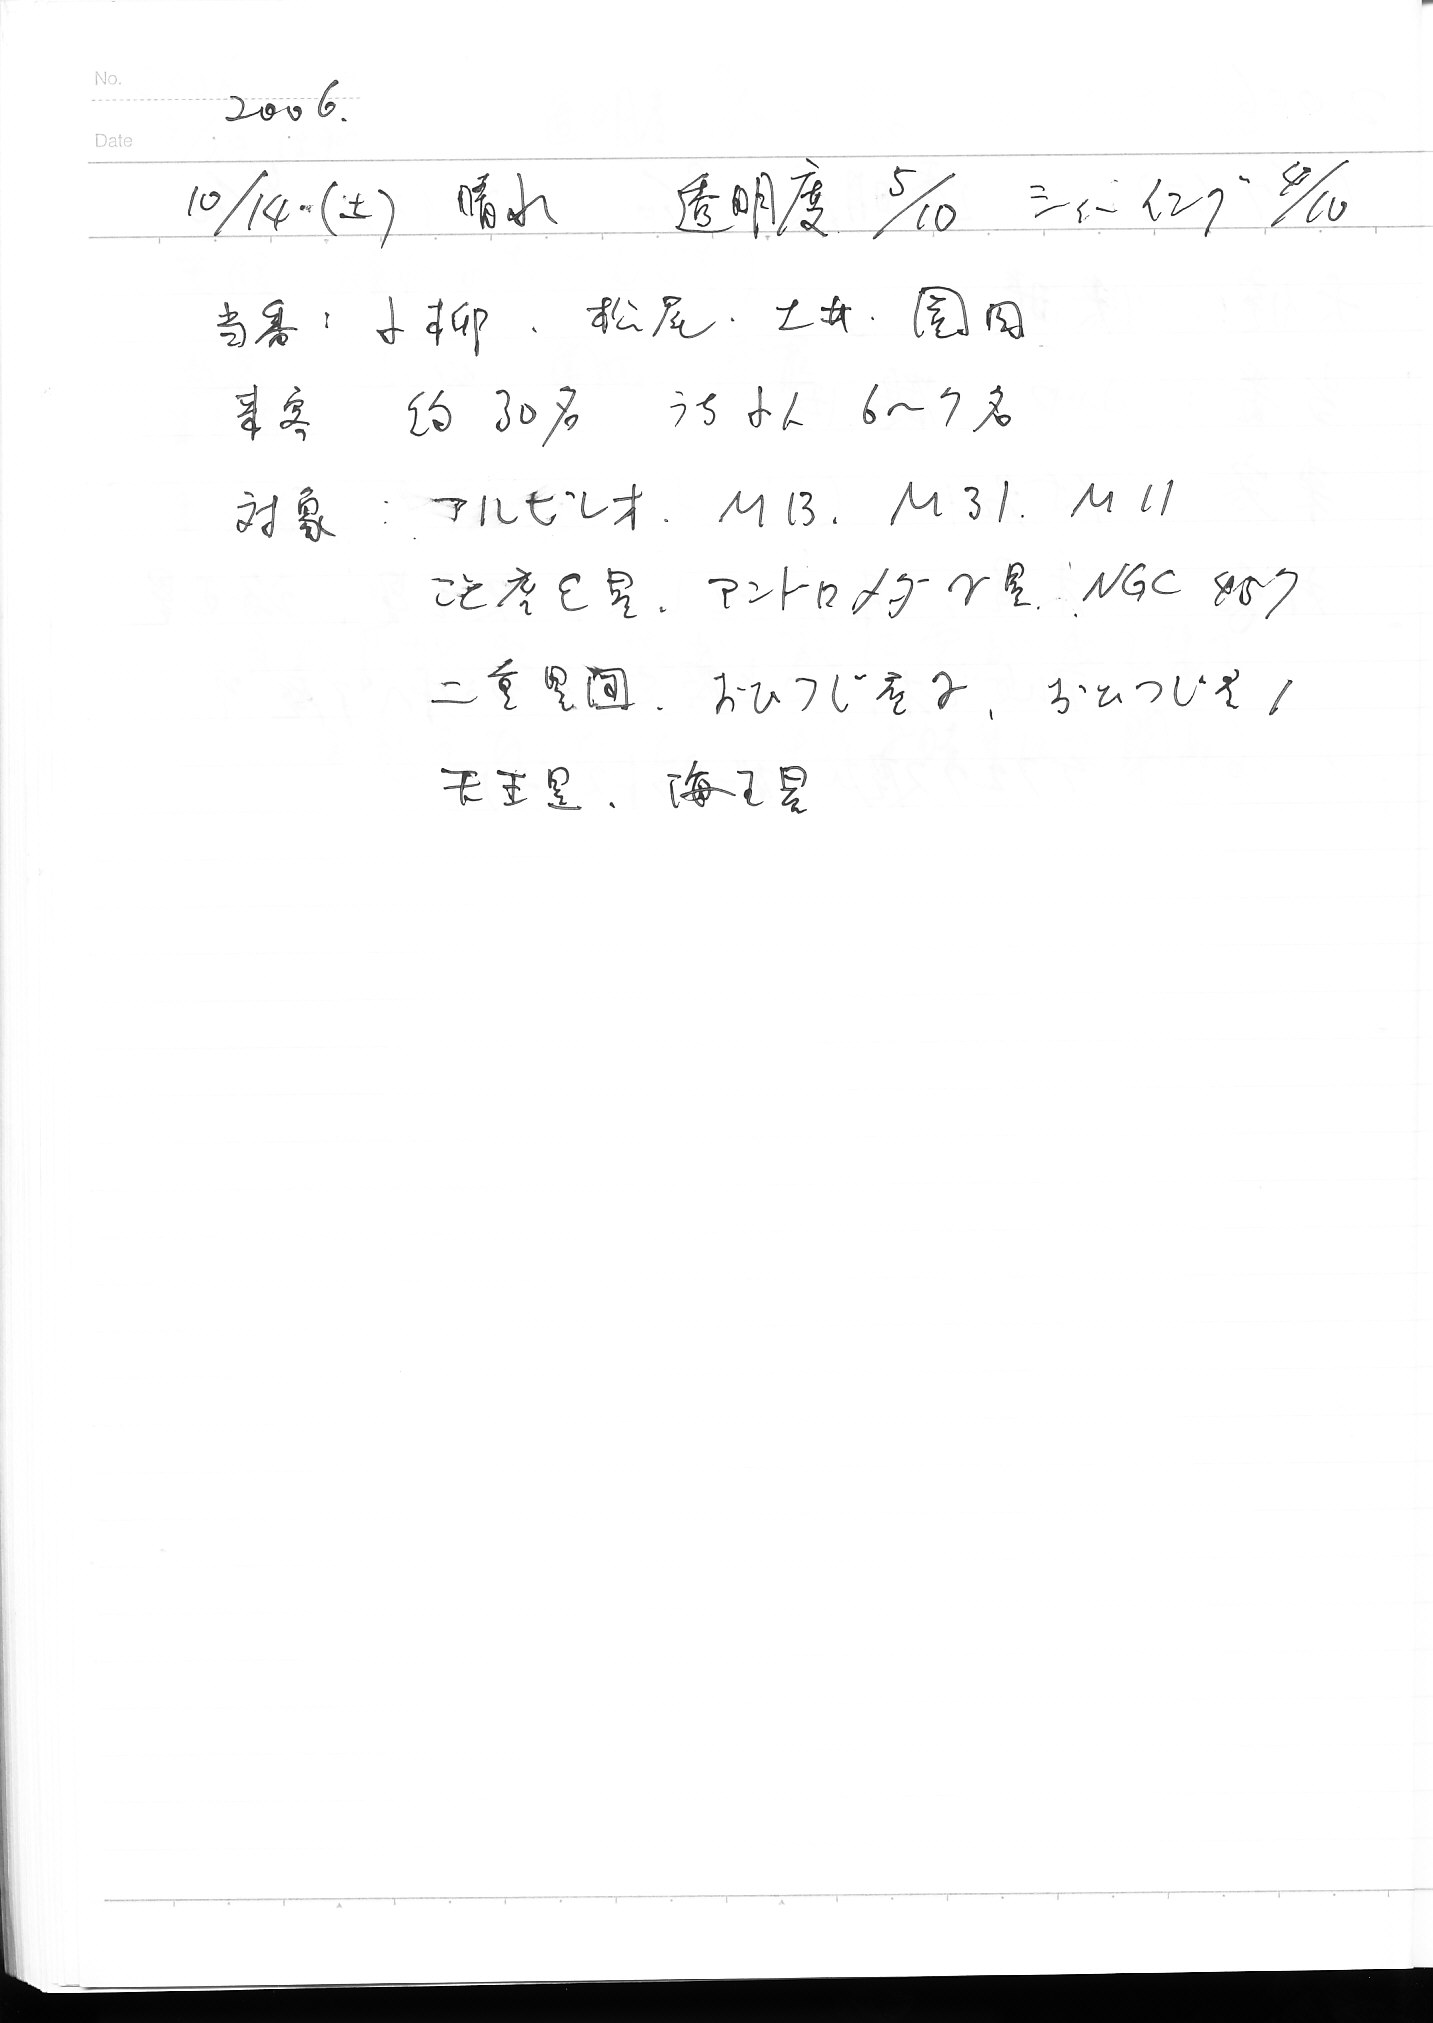 No.
2006.
Date
10/14 (土) 晴れ 透明度 5/10 シィーイング 4/10
当番: 小柳. 松尾. 土井. 園田
来客 約30名 うち 6〜7名
対象: アルビレオ. M13. M31. M11
こと座ε星. アンドロメダγ星. NGC 457
二重星団. おひつじ座γ、おひつじ座λ
天王星. 海王星